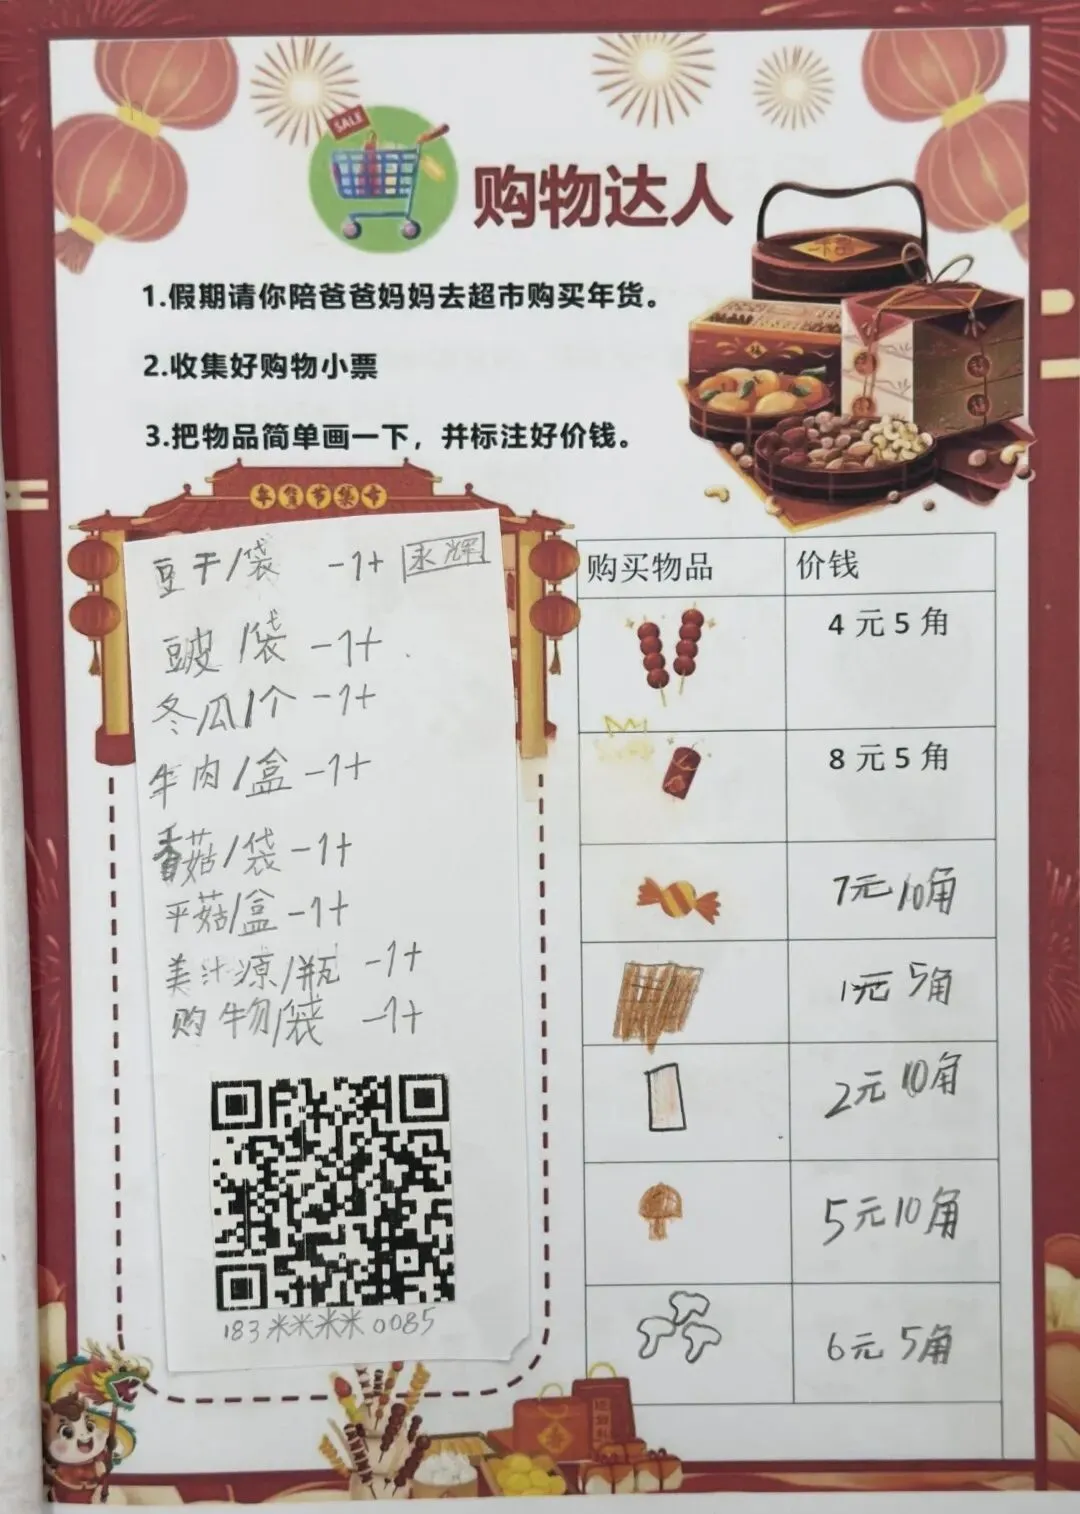 SALE
购物达人
1.假期请你陪爸爸妈妈去超市购买年货。
2.收集好购物小票
3.把物品简单画一下，并标注好价钱。
年货节集市
豆干/袋 -1+ 永辉
豆皮/袋 -1+
冬瓜/个 -1+
牛肉/盒 -1+
香菇/袋 -1+
平菇/盒 -1+
美汁源/瓶 -1+
购物/袋 -1+
183米米米米0085
购买物品 价钱
4元5角
8元5角
7元10角
1元5角
2元10角
5元10角
6元5角